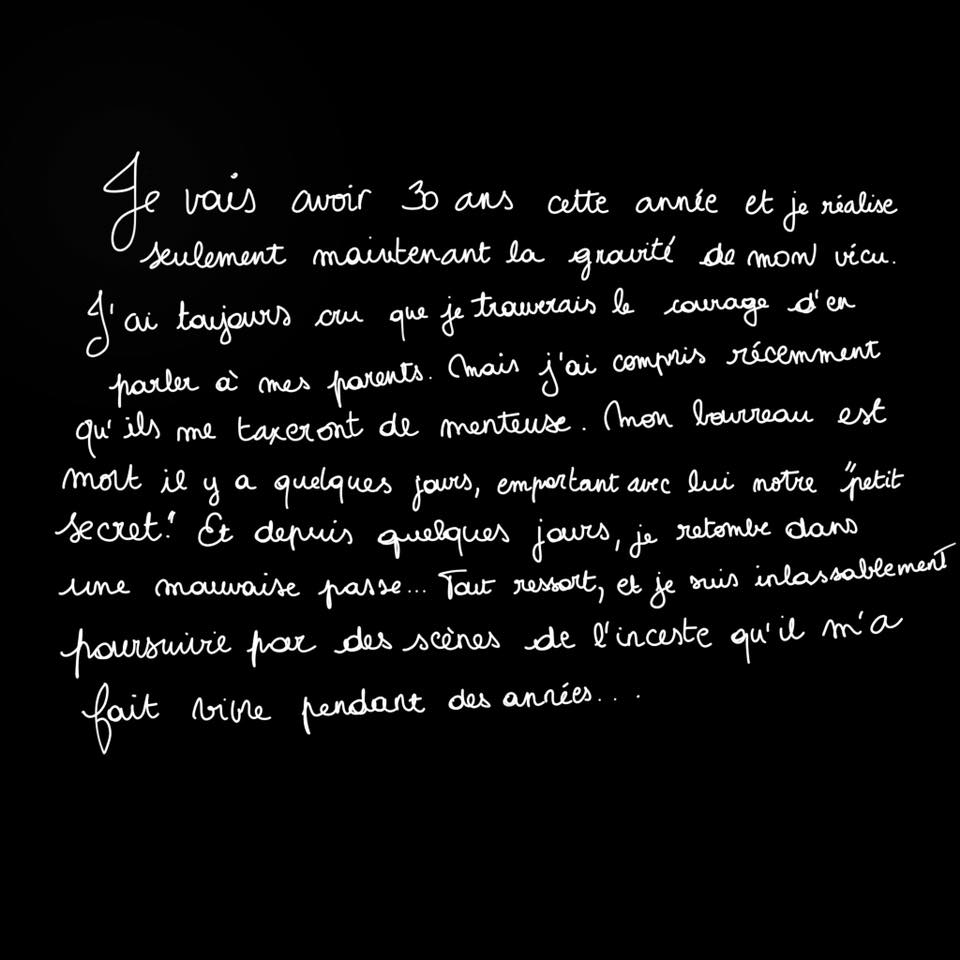 Je vais avoir 30 ans cette année et je réalise
seulement maintenant la gravité de mon vécu.
J'ai toujours cru que je trouverais le courage d'en
parler à mes parents. Mais j'ai compris récemment
qu'ils me taxeront de menteuse. Mon bourreau est
mort il y a quelques jours, emportant avec lui notre "petit
secret." Et depuis quelques jours, je retombe dans
une mauvaise passe... Tout ressort, et je suis inlassablement
poursuivie par des scènes de l'inceste qu'il m'a
fait vivre pendant des années...